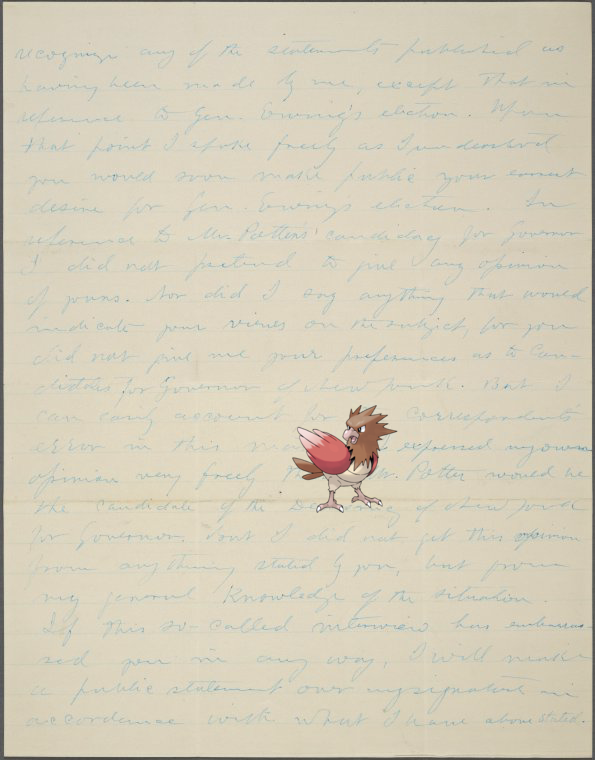 recognize any of the statements published as
having been made by me, except that in
reference to Gen. Ewing's election. Upon
that point I spoke freely as I understood
you would soon make public your earnest
desire for Gen. Ewing's election. In
reference to Mr. Potter's candidacy for Governor
I did not pretend to give any opinion
of yours. Nor did I say anything that would
indicate your views on the subject, for you
did not give me your preferences as to Can-
didates for Governor of New York. But I
can easily account for correspondents
error in this expressed my own
opinion very freely Potter would be
the candidate of the of New York
for Governor, but I did not get this opinion
from anything stated by you, but from
my general Knowledge of the situation.
If this so-called interview has embarras-
sed you in any way, I will make
a public statement over my signature in
accordance with what I have above stated.